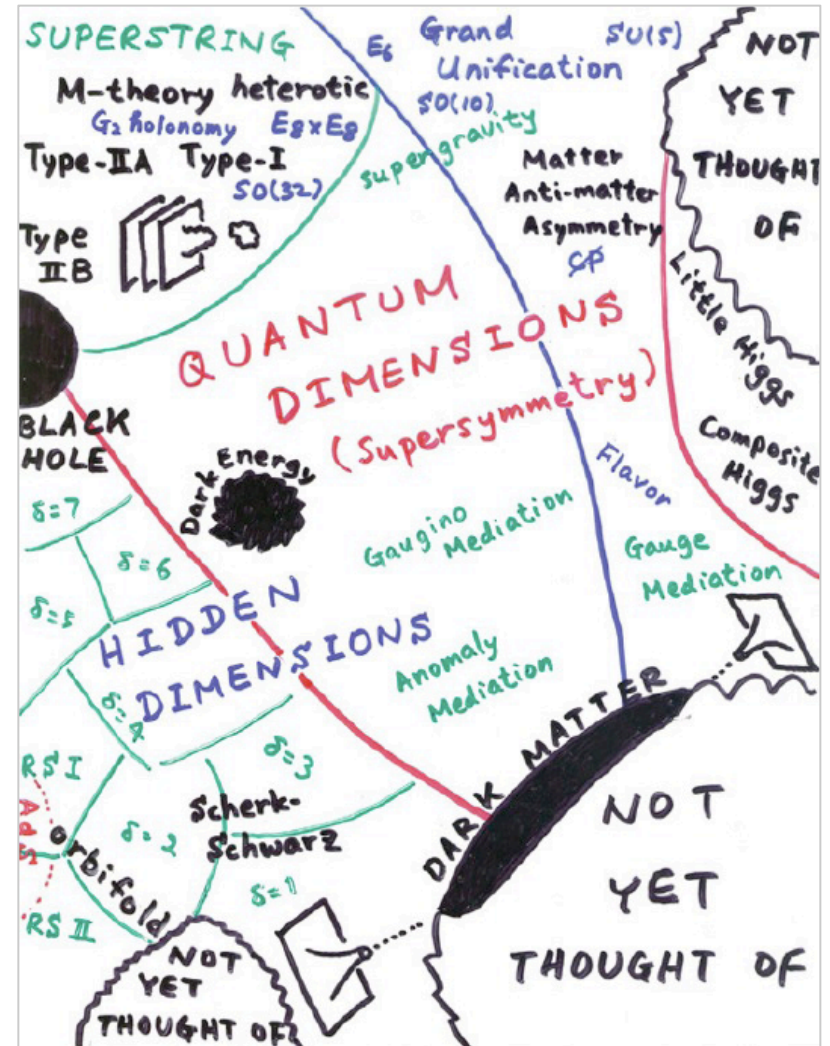 SUPERSTRING
M-theory heterotic
G₂ holonomy E8×E8
Type-IIA Type-I
SO(32)
Type
IIB
E6
Grand
Unification
SU(5)
SO(10)
supergravity
Matter
Anti-matter
Asymmetry
CP
NOT
YET
THOUGHT
OF
Little Higgs
Composite
Higgs
QUANTUM
DIMENSIONS
(Supersymmetry)
BLACK
HOLE
Dark Energy
Flavor
Gaugino
Mediation
Gauge
Mediation
Anomaly
Mediation
δ=7
δ=6
δ=5
HIDDEN
DIMENSIONS
δ=4
δ=3
RS I
AdS
orbifold
δ=2
Scherk-
Schwarz
δ=1
RS II
DARK MATTER
NOT
YET
THOUGHT OF
NOT
YET
THOUGHT OF